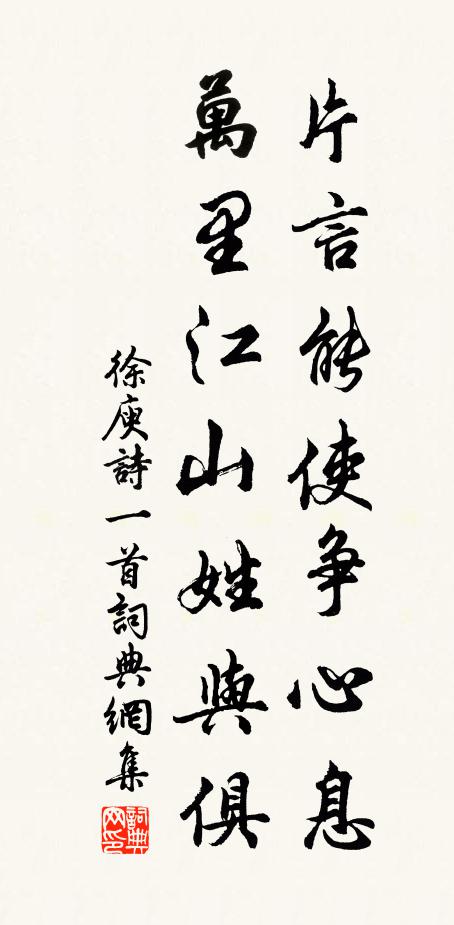 片言能使争心息
萬里江山姓與俱
徐庾詩一首詞典網集
詞典
网印